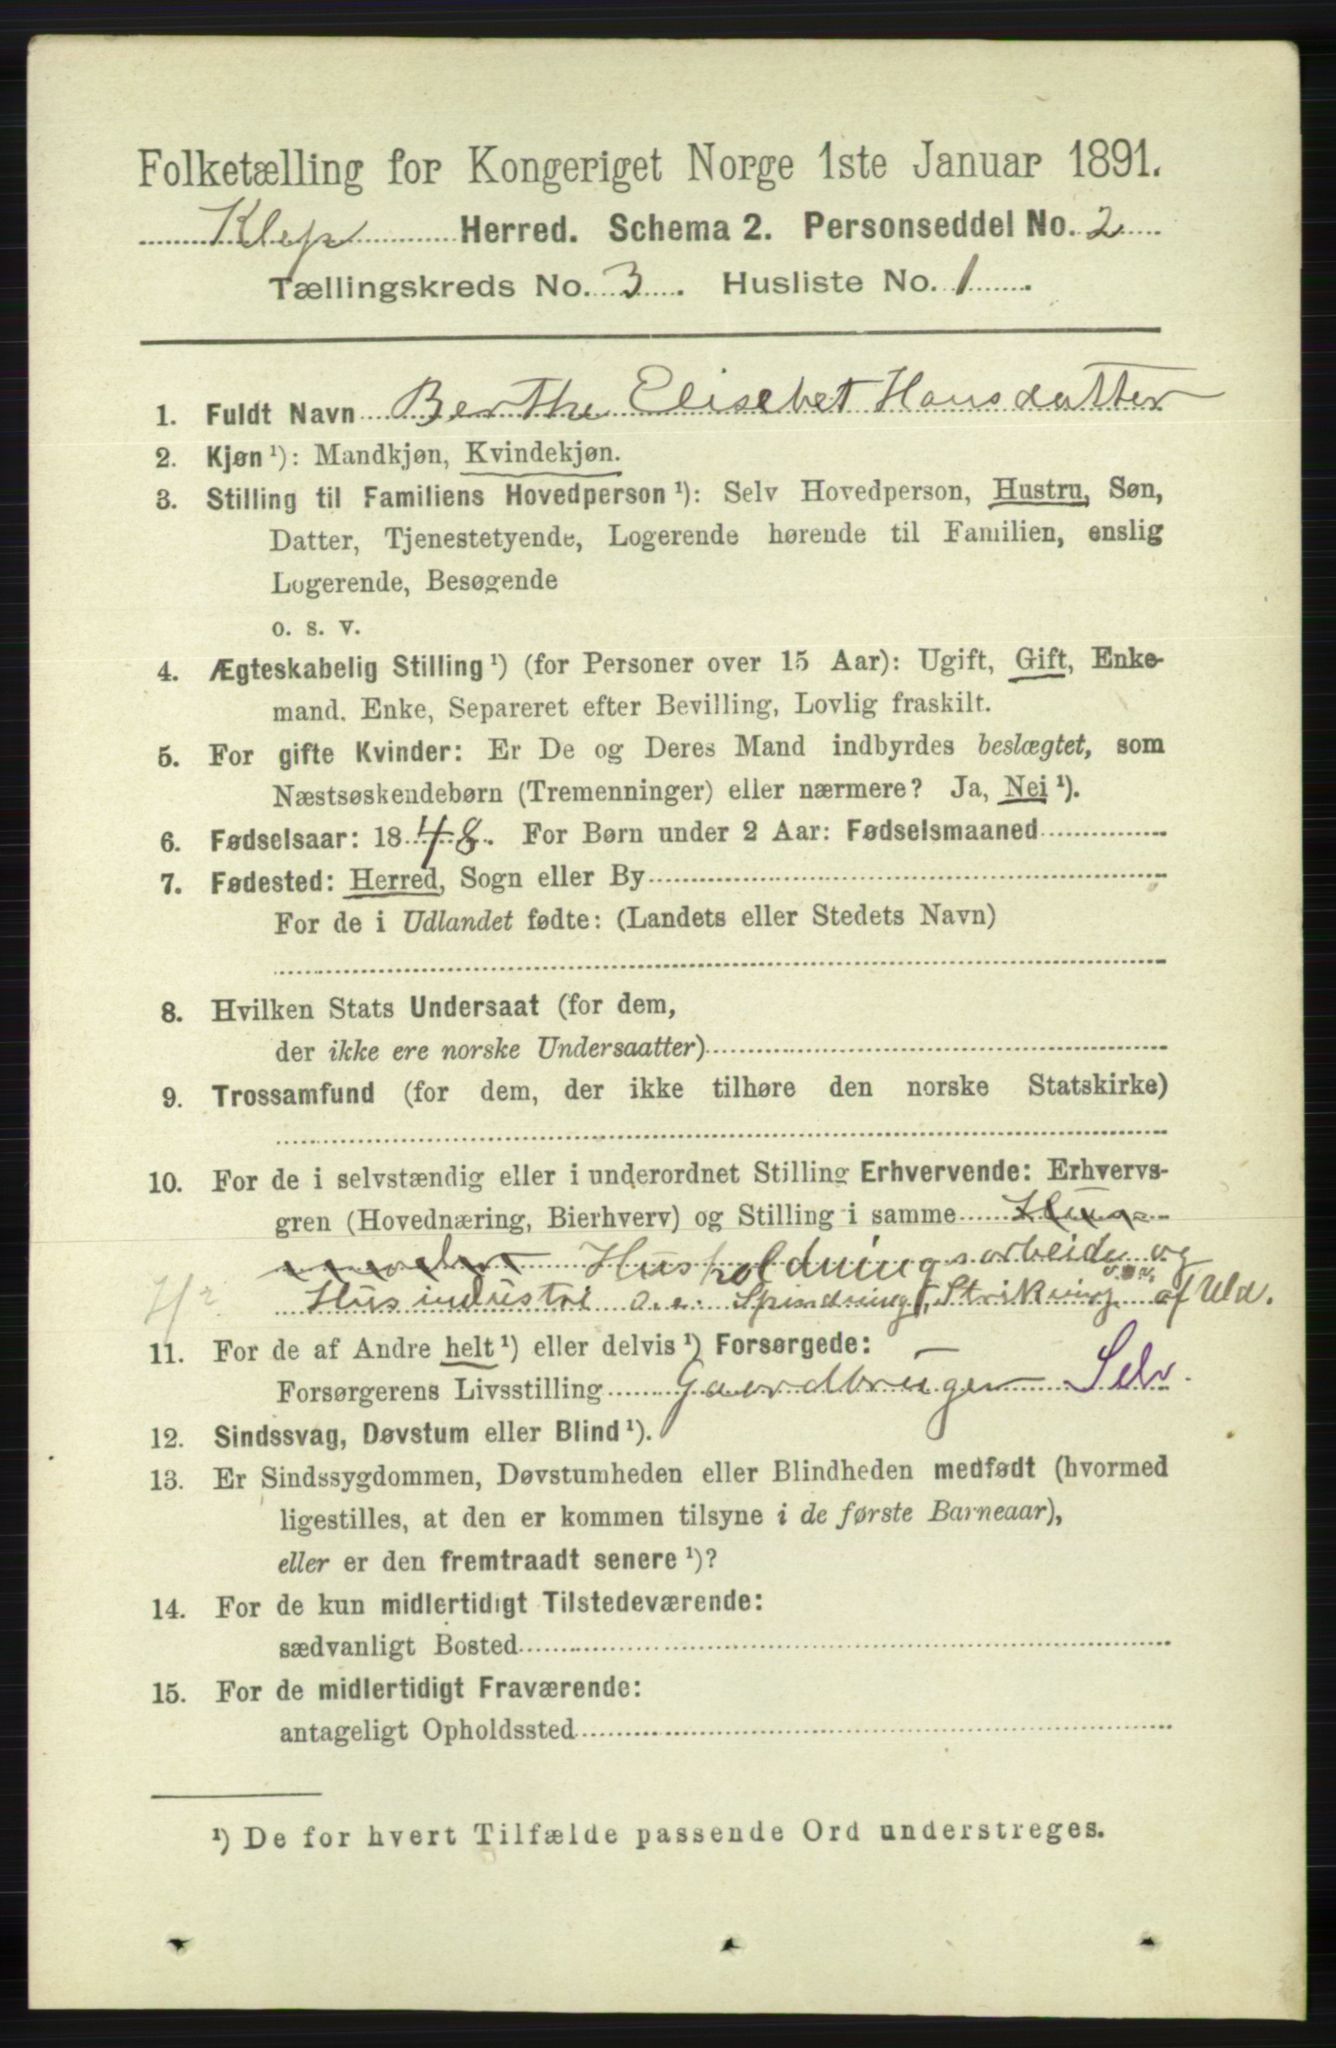 Folketælling for Kongeriget Norge 1ste Januar 1891.
Klep Herred. Schema 2. Personseddel No. 2
Tællingskreds No. 3. Husliste No. 1
1. Fuldt Navn Berthe Elisebet Hansdatter
2. Kjøn ¹): Mandkjøn, Kvindekjøn.
3. Stilling til Familiens Hovedperson ¹): Selv Hovedperson, Hustru, Søn,
Datter, Tjenestetyende, Logerende hørende til Familien, enslig
Logerende, Besøgende
o. s. v.
4. Ægteskabelig Stilling ¹) (for Personer over 15 Aar): Ugift, Gift, Enke-
mand. Enke, Separeret efter Bevilling, Lovlig fraskilt.
5. For gifte Kvinder: Er De og Deres Mand indbyrdes beslægtet, som
Næstsøskendebørn (Tremenninger) eller nærmere? Ja, Nei ¹).
6. Fødselsaar: 1848. For Børn under 2 Aar: Fødselsmaaned
7. Fødested: Herred, Sogn eller By
For de i Udlandet fødte: (Landets eller Stedets Navn)
8. Hvilken Stats Undersaat (for dem,
der ikke ere norske Undersaatter)
9. Trossamfund (for dem, der ikke tilhøre den norske Statskirke)
10. For de i selvstændig eller i underordnet Stilling Erhvervende: Erhvervs-
gren (Hovednæring, Bierhverv) og Stilling i samme
Husholdningsarbeide og
Husindustri Spinding, Strikning o.s.v. af Uld.
11. For de af Andre helt ¹) eller delvis ¹) Forsørgede:
Forsørgerens Livsstilling Gaardbruger Selv.
12. Sindssvag, Døvstum eller Blind ¹).
13. Er Sindssygdommen, Døvstumheden eller Blindheden medfødt (hvormed
ligestilles, at den er kommen tilsyne i de første Barneaar),
eller er den fremtraadt senere ¹)?
14. For de kun midlertidigt Tilstedeværende:
sædvanligt Bosted
15. For de midlertidigt Fraværende:
antageligt Opholdssted
¹) De for hvert Tilfælde passende Ord understreges.